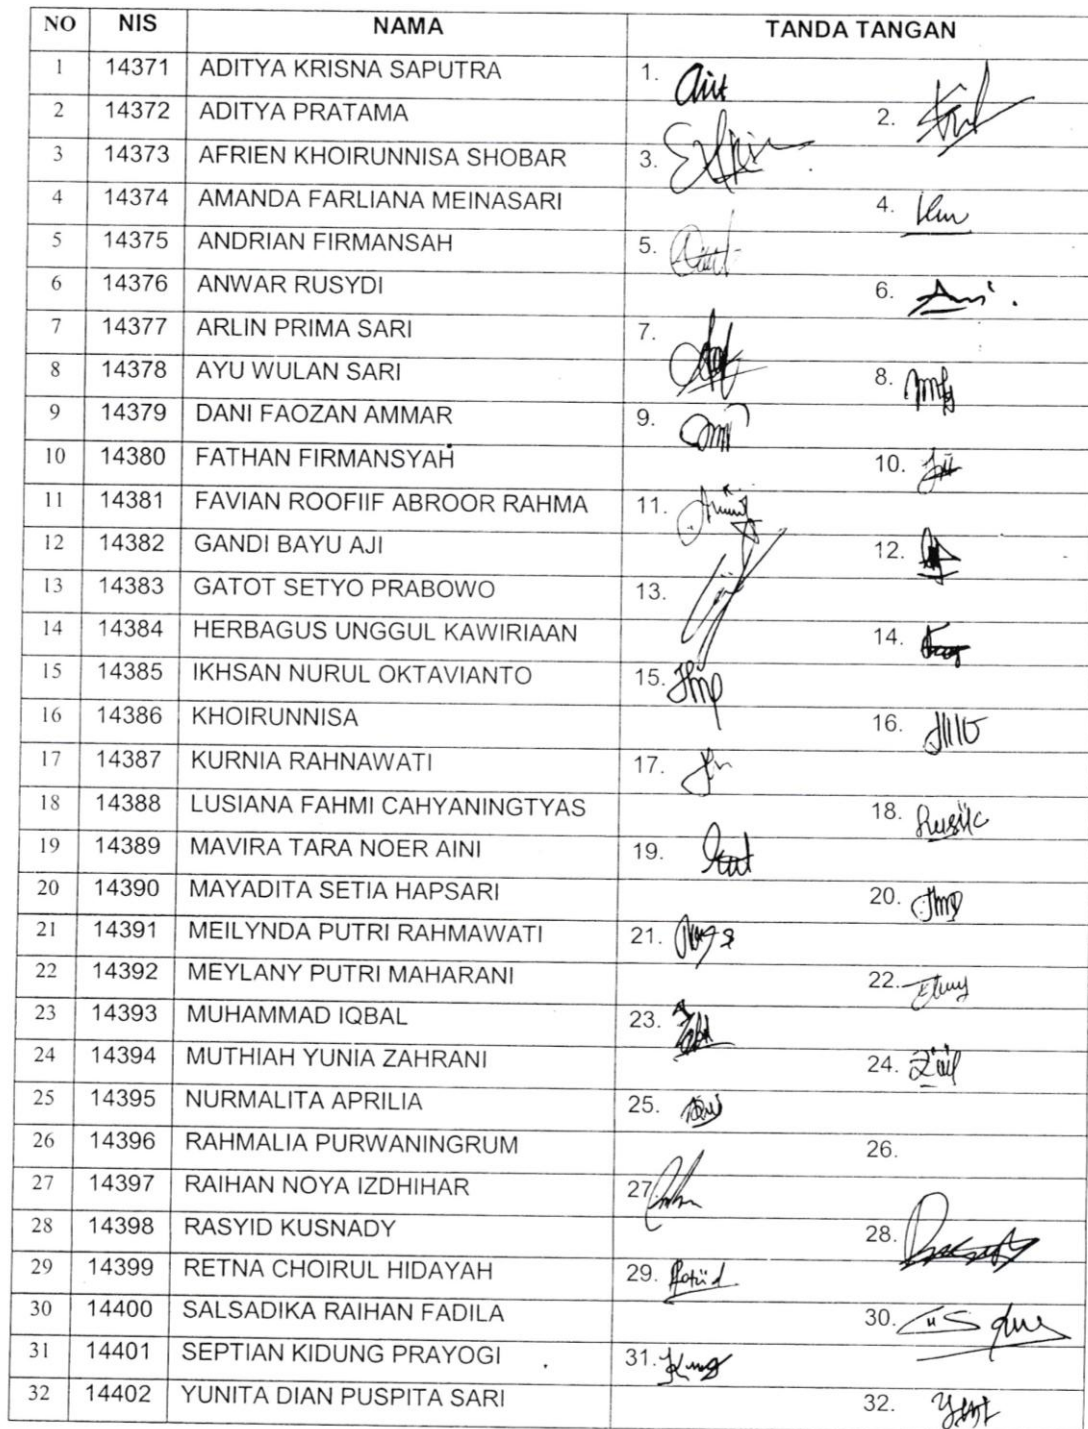 NO NIS NAMA TANDA TANGAN
1 14371 ADITYA KRISNA SAPUTRA 1.
2 14372 ADITYA PRATAMA 2.
3 14373 AFRIEN KHOIRUNNISA SHOBAR 3.
4 14374 AMANDA FARLIANA MEINASARI 4.
5 14375 ANDRIAN FIRMANSAH 5.
6 14376 ANWAR RUSYDI 6.
7 14377 ARLIN PRIMA SARI 7.
8 14378 AYU WULAN SARI 8.
9 14379 DANI FAOZAN AMMAR 9.
10 14380 FATHAN FIRMANSYAH 10.
11 14381 FAVIAN ROOFIIF ABROOR RAHMA 11.
12 14382 GANDI BAYU AJI 12.
13 14383 GATOT SETYO PRABOWO 13.
14 14384 HERBAGUS UNGGUL KAWIRIAAN 14.
15 14385 IKHSAN NURUL OKTAVIANTO 15.
16 14386 KHOIRUNNISA 16.
17 14387 KURNIA RAHNAWATI 17.
18 14388 LUSIANA FAHMI CAHYANINGTYAS 18.
19 14389 MAVIRA TARA NOER AINI 19.
20 14390 MAYADITA SETIA HAPSARI 20.
21 14391 MEILYNDA PUTRI RAHMAWATI 21.
22 14392 MEYLANY PUTRI MAHARANI 22.
23 14393 MUHAMMAD IQBAL 23.
24 14394 MUTHIAH YUNIA ZAHRANI 24.
25 14395 NURMALITA APRILIA 25.
26 14396 RAHMALIA PURWANINGRUM 26.
27 14397 RAIHAN NOYA IZDHIHAR 27
28 14398 RASYID KUSNADY 28.
29 14399 RETNA CHOIRUL HIDAYAH 29.
30 14400 SALSADIKA RAIHAN FADILA 30.
31 14401 SEPTIAN KIDUNG PRAYOGI 31.
32 14402 YUNITA DIAN PUSPITA SARI 32.